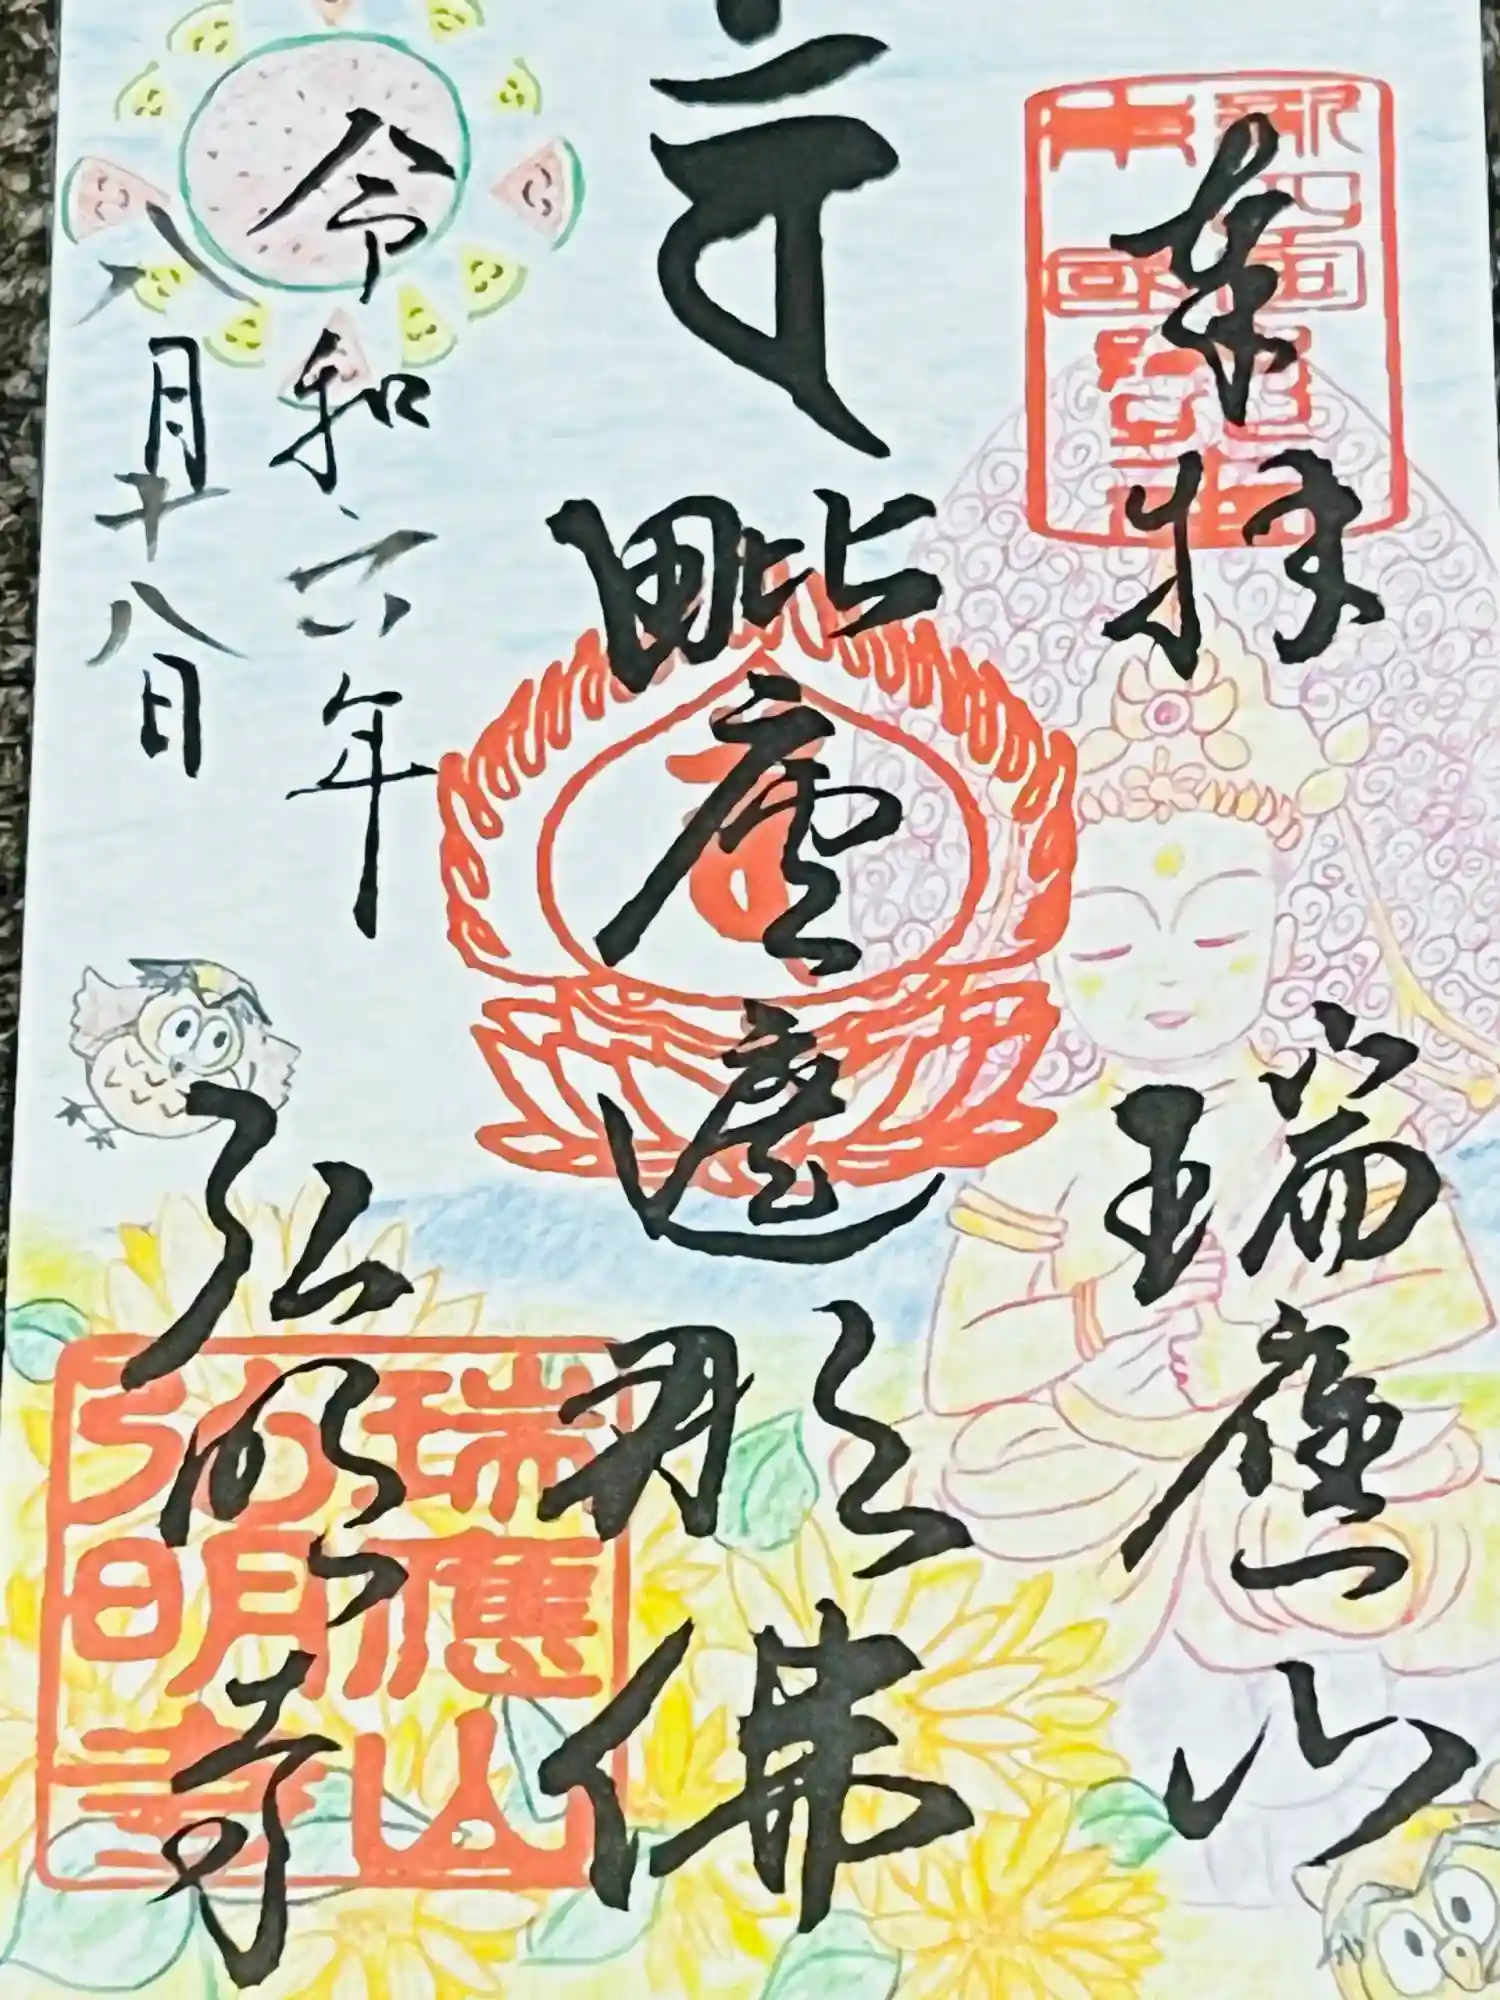 奉拝
瑞應山
毗盧遮那佛
令和六年
八月十八日
弘明寺
瑞應山
弘明寺